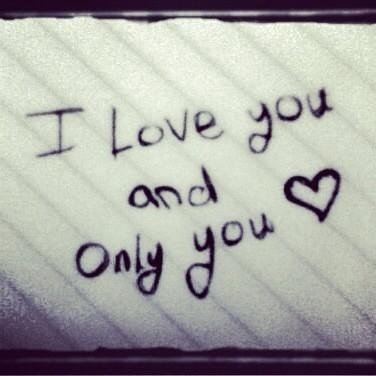 I Love you
and
Only you ♡